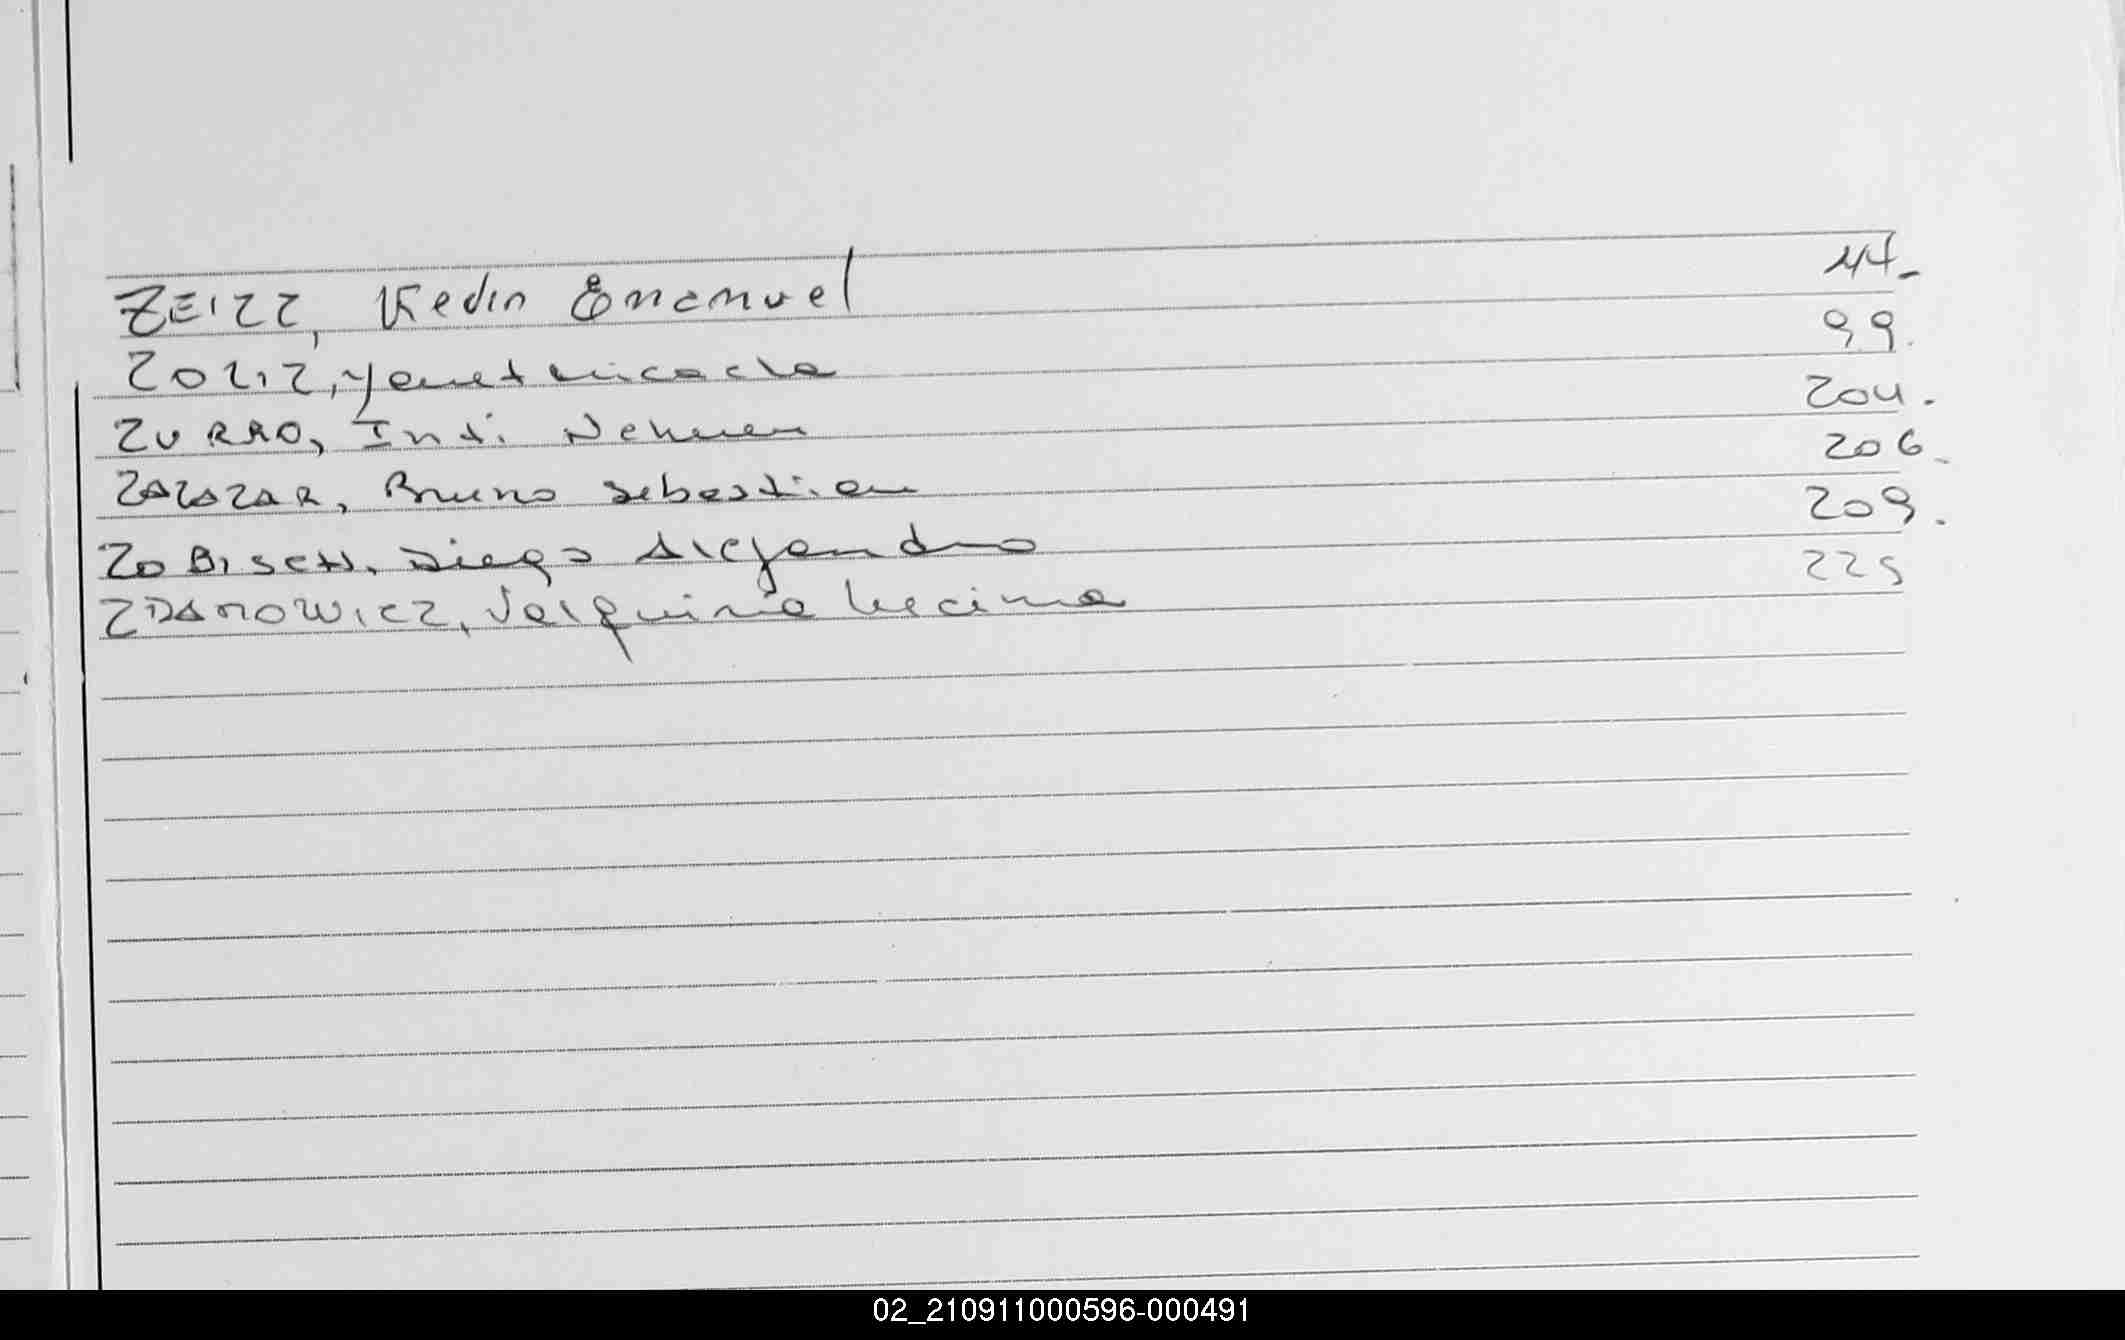 ZEIZZ, Kevin Emanuel 44-
ZOLIZ, Yanet Micaela 99.
ZURRO, Inti Nehuen 204.
ZALAZAR, Bruno Sebastian 206-
ZOBISCH, Diego Alejandro 209.
ZDANOWICZ, Valquiria 225
02_210911000596-000491